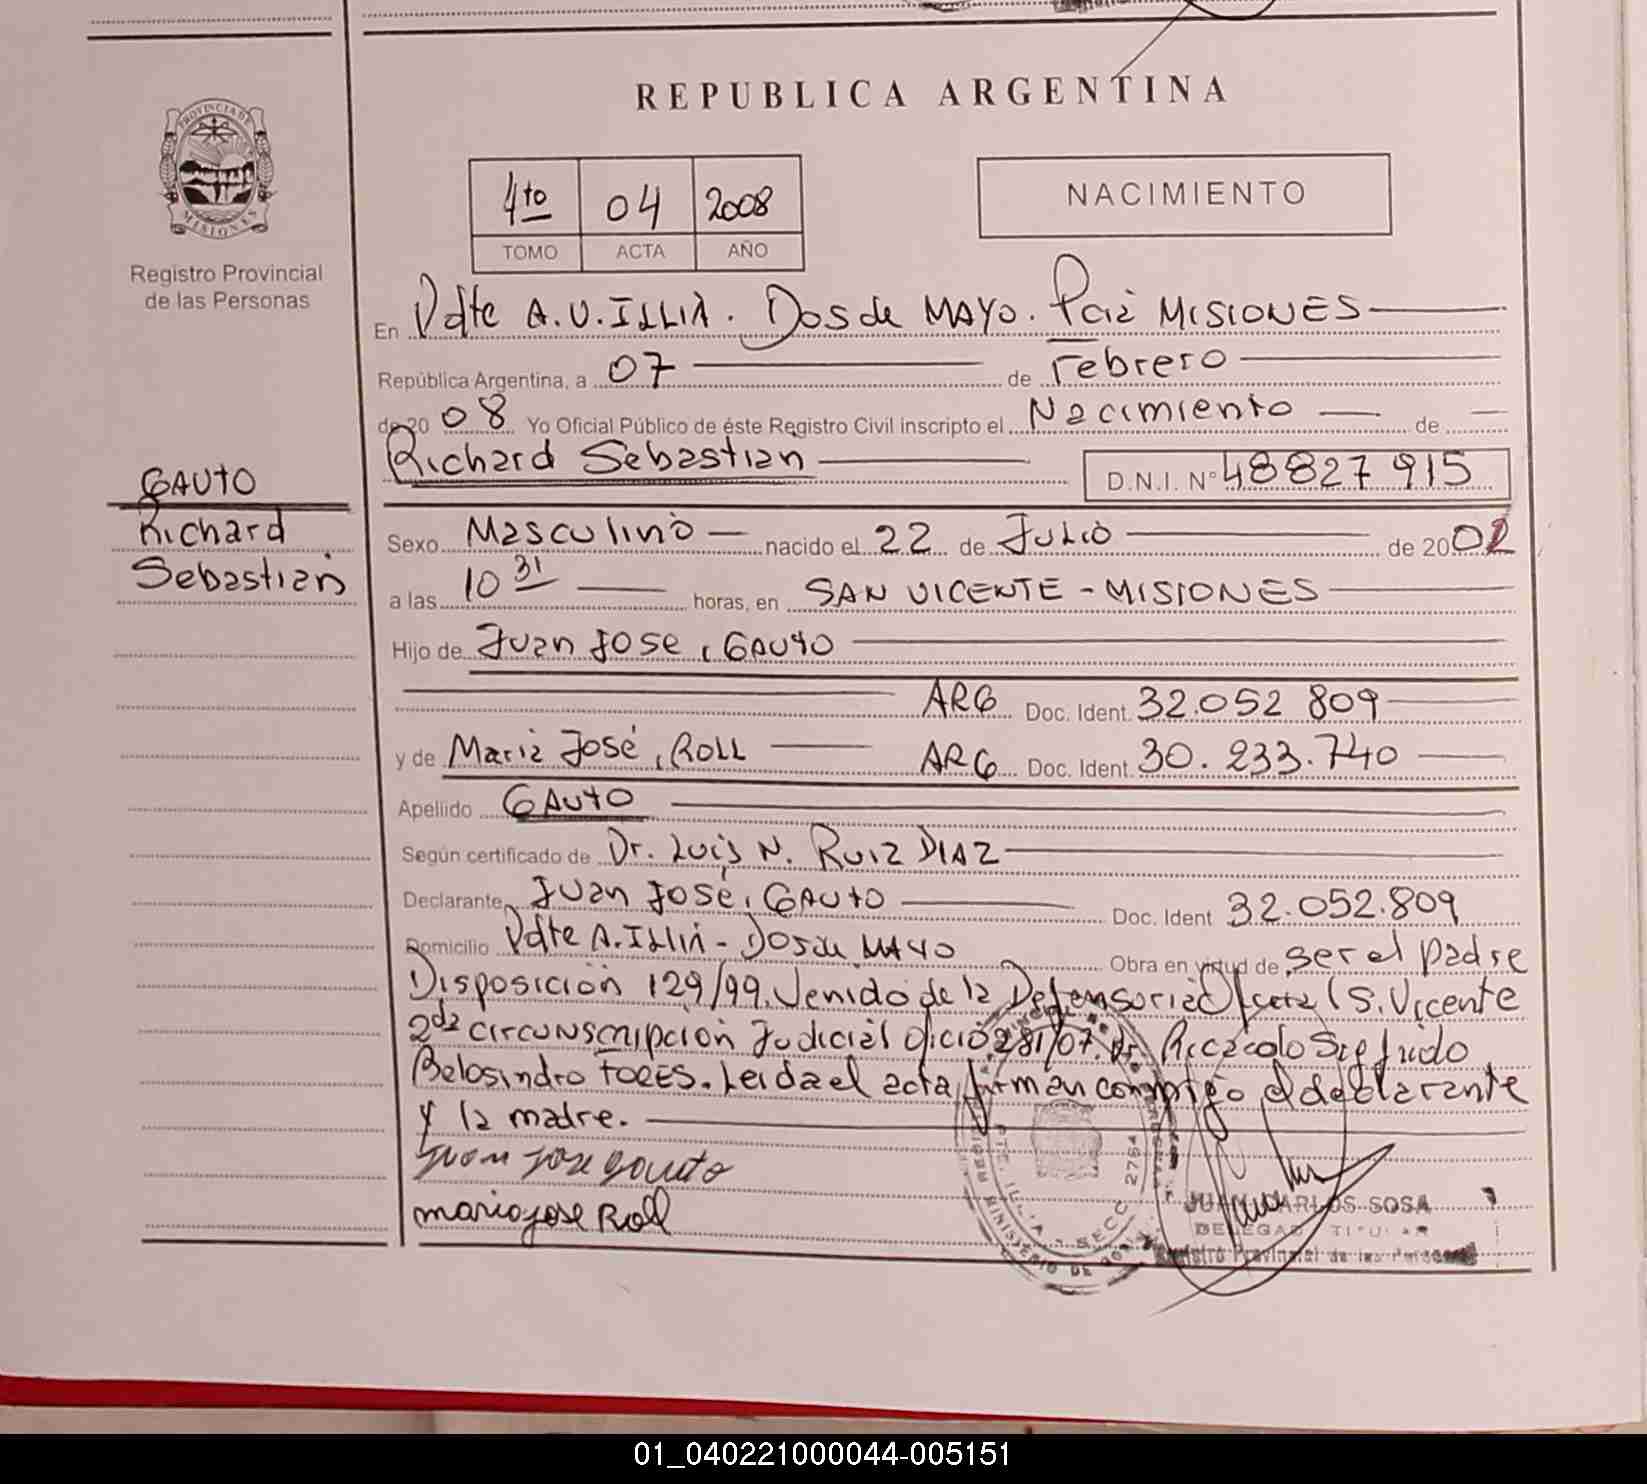 REPUBLICA ARGENTINA
PROVINCIA DE
MISIONES
Registro Provincial
de las Personas
4to 04 2008
TOMO ACTA AÑO
NACIMIENTO
En Pdte A.U.ILLIA. Dos de MAYO. Pcia MISIONES
República Argentina, a 07 de Febrero
de 20 08 Yo Oficial Público de éste Registro Civil inscripto el Nacimiento de
Richard Sebastian D.N.I. Nº 48827915
GAUTO
Richard
Sebastian
Sexo Masculino nacido el 22 de Julio de 2002
a las 10 31 horas, en SAN VICENTE - MISIONES
Hijo de Juan Jose, GAUTO
ARG Doc. Ident. 32.052 809
y de Maria José, ROLL ARG Doc. Ident. 30.233.740
Apellido GAUTO
Según certificado de Dr. Luis N. RUIZ DIAZ
Declarante Juan José, GAUTO Doc. Ident 32.052.809
Domicilio Pdte A.Illia - Dos de MAYO Obra en virtud de ser el padre
Disposición 129/99. Venido de la Defensoria (S. Vicente
2da circunscripción Judicial oficio 281/07. Dr.
Belosindro FORES. Leida el acta firman conmigo el declarante
y la madre.
Juan Jose Gauto
maria jose Roll
JUAN CARLOS SOSA
DELEGADO TITULAR
Registro Provincial de las Personas
01_040221000044-005151